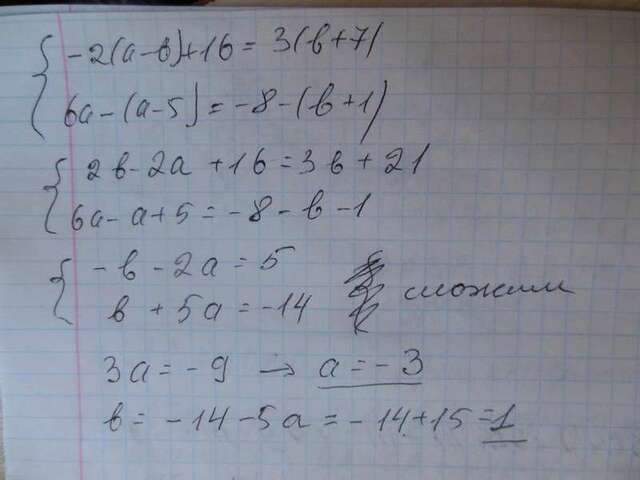 -2(a-в)+16 = 3(в+7)
6a-(a-5) = -8-(в+1)
2в-2a+16=3в+21
6a-a+5=-8-в-1
-в-2a=5
в+5a=-14 сложим
3a=-9 → a=-3
в=-14-5a=-14+15=1